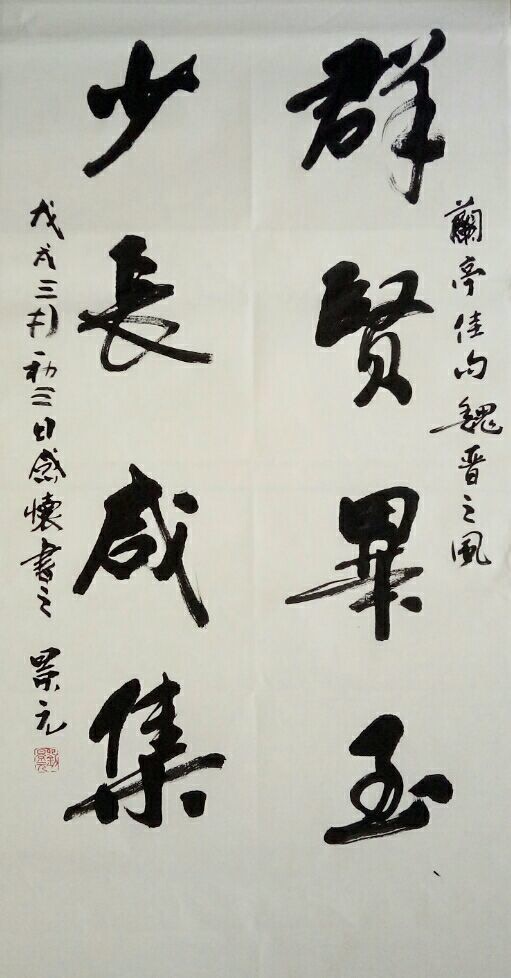 蘭亭佳句魏晋之風
群賢畢至
少長咸集
戊戌三月初三日感懷書之 景元